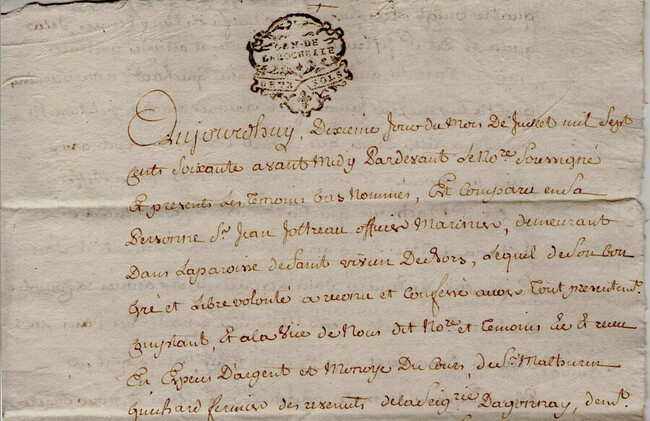 GEN·DE
LAROCHELLE
DEUX SOLS
Aujourdhuy, Dixieme Jour du Mois De Juillet mil Sept
cents Soixante avant Midy Pardevant Le No.re Soussigné
Et presents Les temoins bas Nommés, Est Comparu en sa
Personne S.r Jean Jottreau officier Marinier, demeurant
Dans Laparoisse de Saint vivien De Vors, Lequel de Son bon
gré et Libre volonté a reconu et Confessé avoir Tout presentem.t
, Et a la Vüe de Nous dit No.re et Temoins et receu
En Espece D'argent et Monoye Du Cours, du S.r Mathurin
Guichard fermier des revenus de la Seig.rie Dagonnay, dem.t